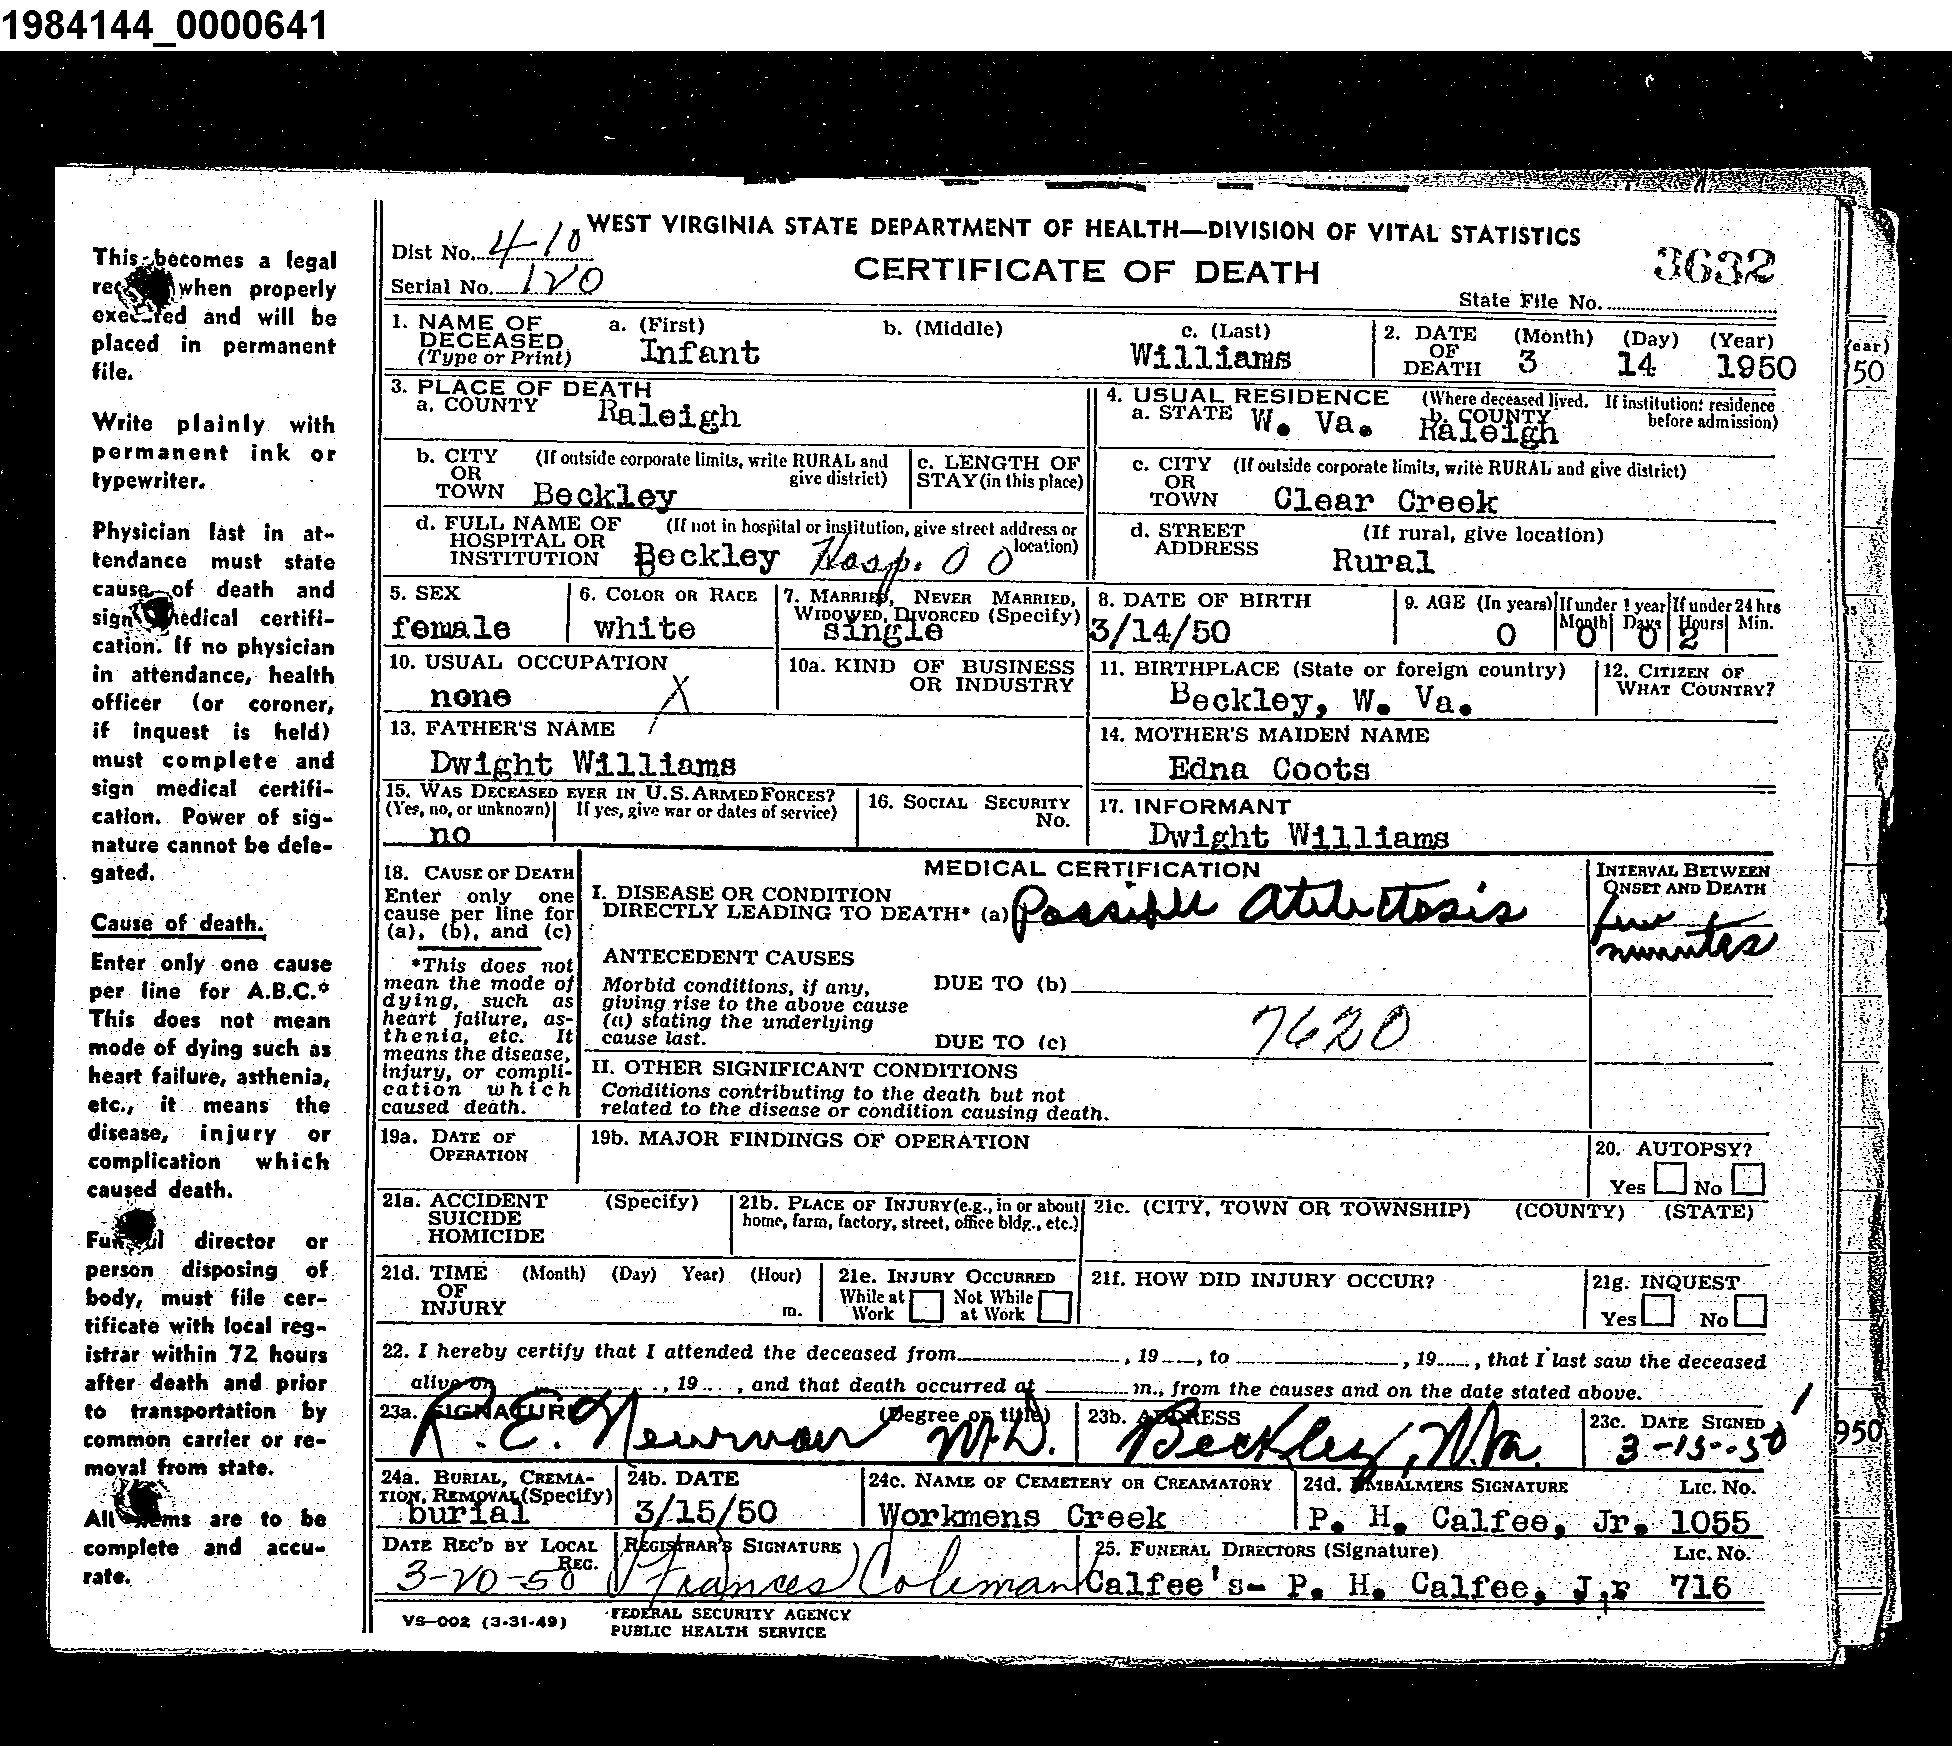 1984144_0000641
This becomes a legal
when properly
executed and will be
placed in permanent
file.
Write plainly with
permanent ink or
typewriter.
Physician last in at-
tendance must state
cause of death and
sign medical certifi-
cation. If no physician
in attendance, health
officer (or coroner,
if inquest is held)
must complete and
sign medical certifi-
cation. Power of sig-
nature cannot be dele-
gated.
Cause of death.
Enter only one cause
per line for A.B.C.*
This does not mean
mode of dying such as
heart failure, asthenia,
etc., it means the
disease, injury or
complication which
caused death.
Funeral director or
person disposing of
body, must file cer-
tificate with local reg-
istrar within 72 hours
after death and prior
to transportation by
common carrier or re-
moval from state.
All items are to be
complete and accu-
rate.
WEST VIRGINIA STATE DEPARTMENT OF HEALTH—DIVISION OF VITAL STATISTICS
Dist No. 410
CERTIFICATE OF DEATH
3632
Serial No. 120
State File No.
1. NAME OF DECEASED (Type or Print) a. (First) Infant b. (Middle) c. (Last) Williams
2. DATE OF DEATH (Month) (Day) (Year) 3 14 1950
3. PLACE OF DEATH
a. COUNTY Raleigh
4. USUAL RESIDENCE (Where deceased lived. If institution: residence before admission)
a. STATE W. Va. b. COUNTY Raleigh
b. CITY OR TOWN (If outside corporate limits, write RURAL and give district) Beckley
c. LENGTH OF STAY (in this place)
c. CITY OR TOWN (If outside corporate limits, write RURAL and give district) Clear Creek
d. FULL NAME OF HOSPITAL OR INSTITUTION (If not in hospital or institution, give street address or location) Beckley Hosp. 0 0
d. STREET ADDRESS (If rural, give location) Rural
5. SEX female
6. COLOR OR RACE white
7. MARRIED, NEVER MARRIED, WIDOWED, DIVORCED (Specify) single
8. DATE OF BIRTH 3/14/50
9. AGE (In years) 0 If under 1 year Month 0 Days 0 If under 24 hrs Hours 2 Min.
10. USUAL OCCUPATION none X
10a. KIND OF BUSINESS OR INDUSTRY
11. BIRTHPLACE (State or foreign country) Beckley, W. Va.
12. CITIZEN OF WHAT COUNTRY?
13. FATHER'S NAME
Dwight Williams
14. MOTHER'S MAIDEN NAME
Edna Coots
15. WAS DECEASED EVER IN U.S. ARMED FORCES?
(Yes, no, or unknown) If yes, give war or dates of service)
no
16. SOCIAL SECURITY No.
17. INFORMANT
Dwight Williams
18. CAUSE OF DEATH
Enter only one
cause per line for
(a), (b), and (c)
*This does not
mean the mode of
dying, such as
heart failure, as-
thenia, etc. It
means the disease,
injury, or compli-
cation which
caused death.
MEDICAL CERTIFICATION
I. DISEASE OR CONDITION
DIRECTLY LEADING TO DEATH* (a) Possible Atelectosis
INTERVAL BETWEEN
ONSET AND DEATH
few
minutes
ANTECEDENT CAUSES
Morbid conditions, if any,
giving rise to the above cause
(a) stating the underlying
cause last.
DUE TO (b)
DUE TO (c)
7620
II. OTHER SIGNIFICANT CONDITIONS
Conditions contributing to the death but not
related to the disease or condition causing death.
19a. DATE OF OPERATION
19b. MAJOR FINDINGS OF OPERATION
20. AUTOPSY?
Yes No
21a. ACCIDENT SUICIDE HOMICIDE (Specify)
21b. PLACE OF INJURY (e.g., in or about home, farm, factory, street, office bldg., etc.)
21c. (CITY, TOWN OR TOWNSHIP) (COUNTY) (STATE)
21d. TIME OF INJURY (Month) (Day) Year) (Hour) m.
21e. INJURY OCCURRED
While at Work Not While at Work
21f. HOW DID INJURY OCCUR?
21g. INQUEST
Yes No
22. I hereby certify that I attended the deceased from , 19 , to , 19 , that I last saw the deceased
alive on , 19 , and that death occurred at m., from the causes and on the date stated above.
23a. SIGNATURE (Degree or title)
R. E. Newman M.D.
23b. ADDRESS
Beckley, W.Va.
23c. DATE SIGNED
3-15-50
24a. BURIAL, CREMATION, REMOVAL (Specify)
burial
24b. DATE
3/15/50
24c. NAME OF CEMETERY OR CREAMATORY
Workmens Creek
24d. EMBALMERS SIGNATURE LIC. NO.
P. H. Calfee, Jr. 1055
DATE REC'D BY LOCAL REG.
3-20-50
REGISTRAR'S SIGNATURE
Frances Coleman
25. FUNERAL DIRECTORS (Signature) LIC. NO.
Calfee's- P. H. Calfee, J,r 716
VS—002 (3-31-49)
FEDERAL SECURITY AGENCY
PUBLIC HEALTH SERVICE
ear)
50
950